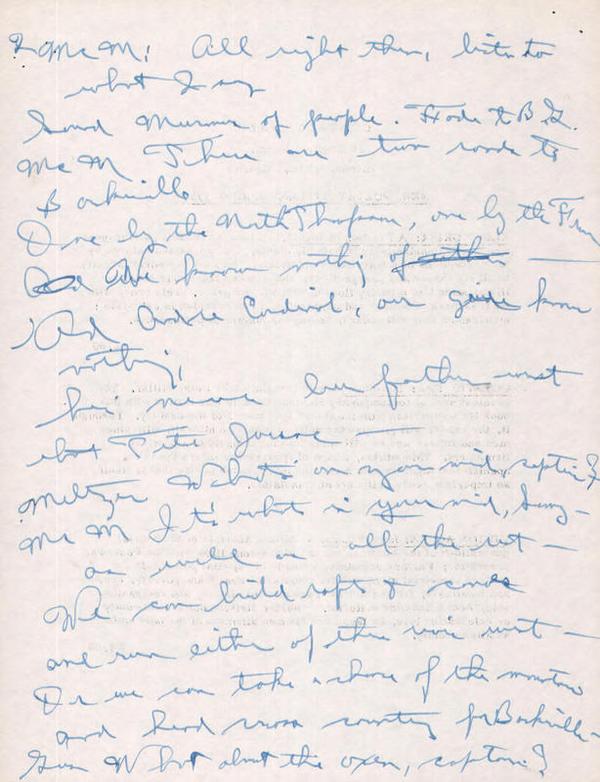 McM: All right then, listen to
what I say
Sound Murmur of people.
McM There are two roads to
Barkerville
One by the North Thompson, one by the Fraser
We know nothing of either —
And Andre Cardinal, our guide knows
nothing,
he's never been farther west
than Tete Jaune —
Meltzer What's on your mind, captain?
McM It's what's in your mind, Larry —
as well as all the rest —
We can build rafts & canoes
and run either of the rivers west —
Or we can take a chance of the mountains
and head cross country for Barkerville —
What about the oxen, captain?